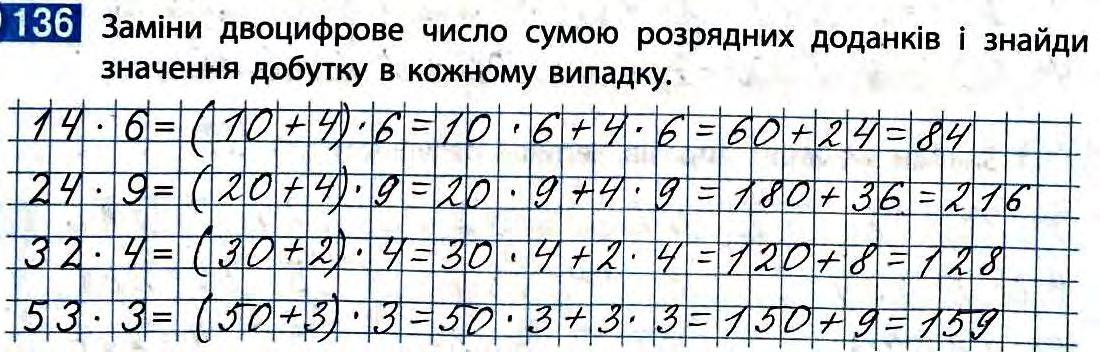 136 Заміни двоцифрове число сумою розрядних доданків і знайди
значення добутку в кожному випадку.
14 · 6 = (10 + 4) · 6 = 10 · 6 + 4 · 6 = 60 + 24 = 84
24 · 9 = (20 + 4) · 9 = 20 · 9 + 4 · 9 = 180 + 36 = 216
32 · 4 = (30 + 2) · 4 = 30 · 4 + 2 · 4 = 120 + 8 = 128
53 · 3 = (50 + 3) · 3 = 50 · 3 + 3 · 3 = 150 + 9 = 159